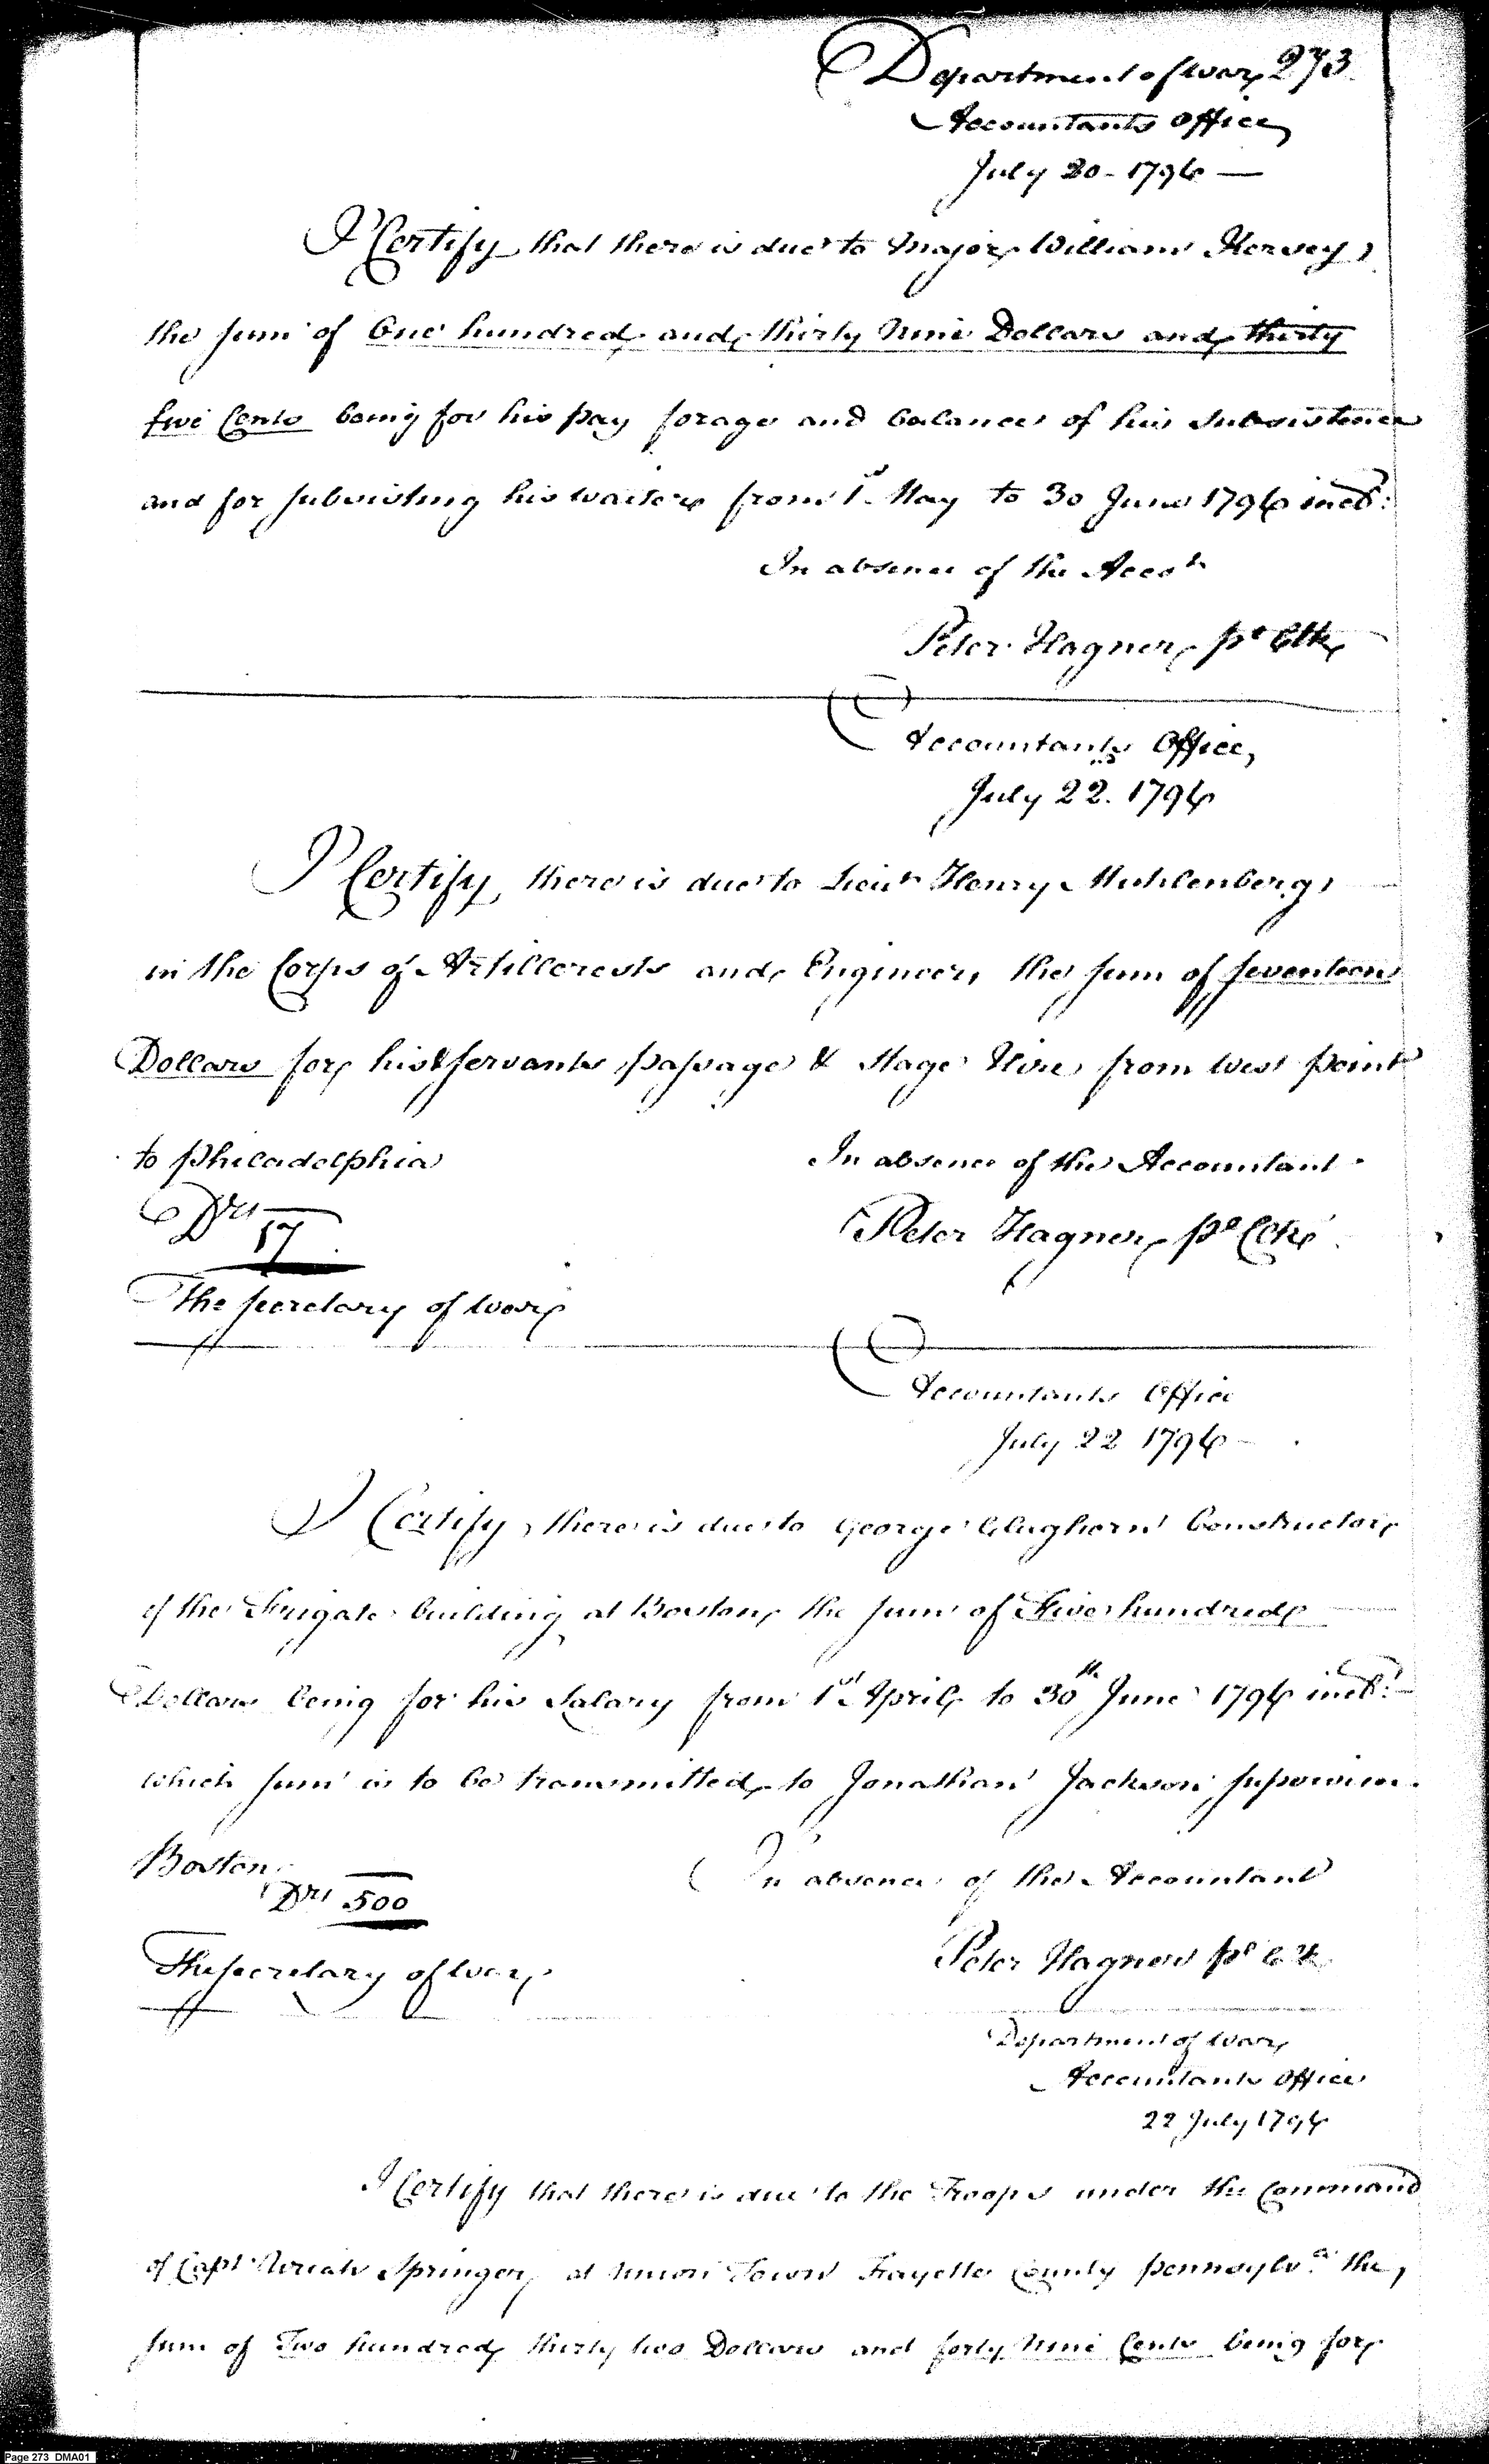 Department of War 273
Accountants Office
July 20 - 1796 —
I Certify that there is due to Major William Kersey,
the sum of One hundred and thirty Nine Dollars and thirty
five Cents being for his pay forage and balance of his Subsistence
and for subsisting his waiters from 1st May to 30 June 1796 incl:
In absence of the Acct
Peter Hagner, pl Clk
Accountants Office,
July 22. 1796
I Certify, there is due to Lieut Henry Muhlenberg,
in the Corps of Artillerests and Engineers the sum of seventeen
Dollars for his & servants passage & Stage Hire from West point
to philadelphia
In absence of the Accountant
Drs 17
Peter Hagner, pl Clk
The secretary of War
Accountants Office
July 22 1796
I Certify, there is due to George Claghorn Constructor
of the Frigate building at Boston, the sum of Five hundred
Dollars being for his Salary from 1st April to 30th June 1796 incl:
which sum is to be transmitted to Jonathan Jackson supervisor
Boston
In absence of the Accountant
Drs 500
Peter Hagner pl Clk
The secretary of War
Department of War
Accountants Office
22 July 1796
I Certify that there is due to the Troops under the Command
of Capt Uriah Springer, at Union Town Fayette County pennsylva. the,
sum of Two hundred thirty two Dollars and forty Nine Cents being for
Page 273 DMA01